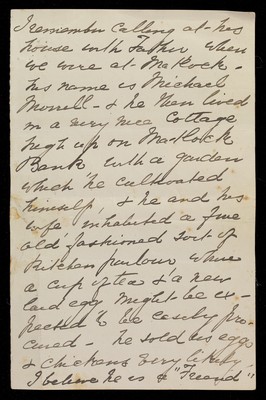 I remember calling at his
house with Father when
we were at Matlock -
his name is Michael
Morrell - & he then lived
in a very nice Cottage
high up on Matlock
Bank with a garden
which he cultivated
himself, & he and his
wife inhabited a fine
old fashioned sort of
Kitchen parlour where
a cup of tea & a new
laid egg might be ex-
pected to be easily pro-
cured - he sold us eggs
& chickens very likely -
I believe he is a "Friend"